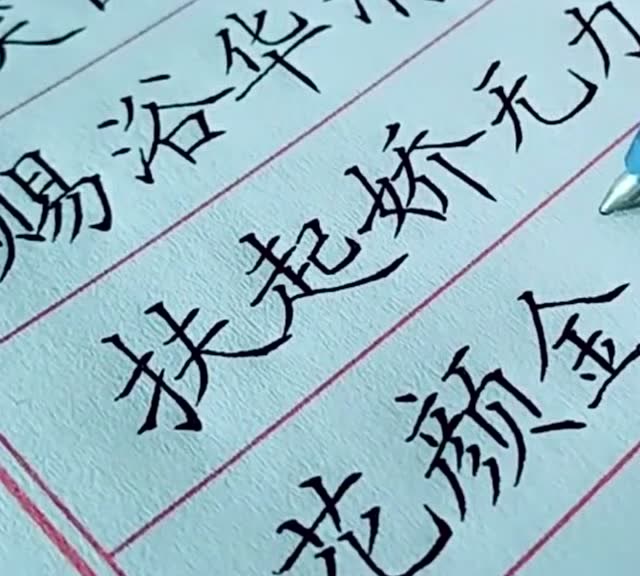 赐浴华
扶起娇无力
花颜金